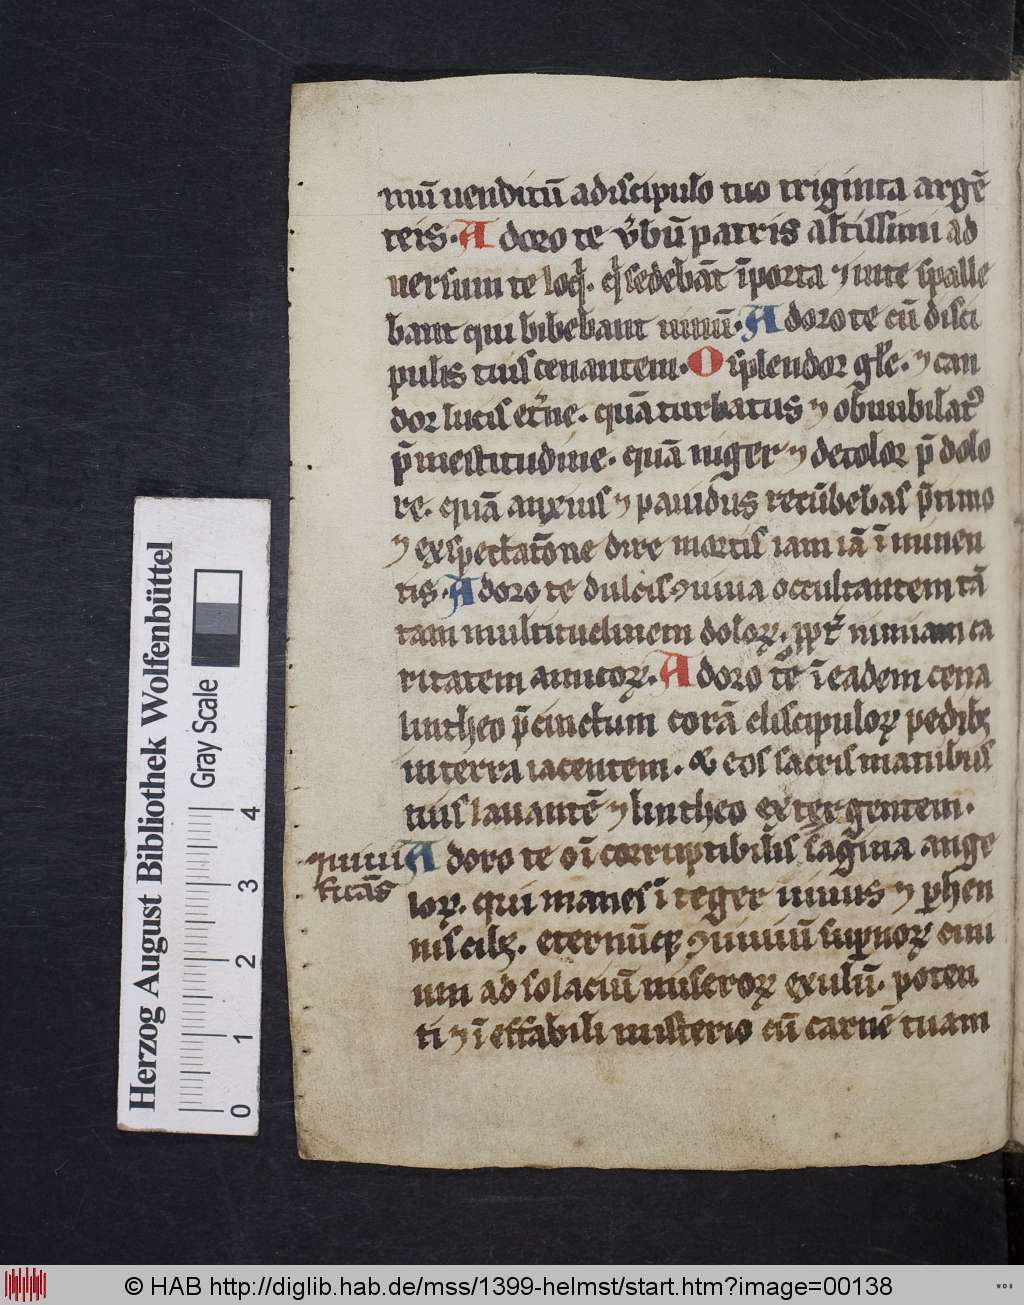 mū uenditū adiscipulo tuo triginta argē
teis. Adoro te v̓bū patris altissimi ad
uersum te loq̄. q̄ sedebāt īporta ⁊ inte īpsalle
bant qui bibebant uinū. Adoro te cū disci
pulis tuis cenantem. O splendor gl̄e. ⁊ can
dor lucis et̓ne. quā turbatus ⁊ obnubilat᷒
p̄ mestitudine. quā niger ⁊ decolor p̄ dolo
re. quā anxius ⁊ pauidus recūbebas p̄ timo
⁊ exspectatōne dire mortis iam iā īminen
tis. Adoro te dulcis ꝯuiua occultantem tā
tam multitudinem doloꝝ. ꝓpt̓ nimiam ca
ritatem amicoꝝ. Adoro te ī eadem cena
lintheo p̄cinctum corā discipuloꝝ pedibꝫ
interra iacentem. & eos sacris manibus
tuis lauantē ⁊ lintheo extergentem.
qui uiui
ficās
Adoro te o īcorruptibilis sagīna ange
loꝝ. qui manes īteger uiuus ⁊ ꝑhen
nis cibꝫ. eternūqꝫ ꝯuiuiū suꝑnoꝝ ciui
um ad solaciū miseroꝝ exulū. poten
ti ⁊ īeffabili misterio cū carnē tuam
Herzog August Bibliothek Wolfenbüttel
Gray Scale
0 1 2 3 4
© HAB http://diglib.hab.de/mss/1399-helmst/start.htm?image=00138